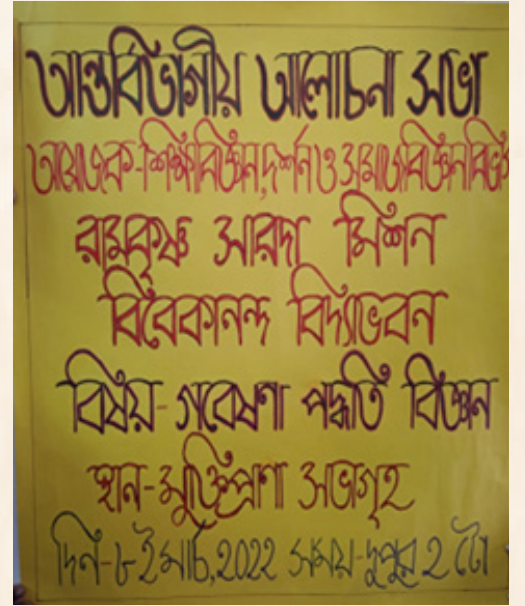 আন্তর্বিভাগীয় আলোচনা সভা
আয়োজক-শিক্ষাবিজ্ঞান, দর্শন ও সমাজবিজ্ঞান বিভাগ
রামকৃষ্ণ সারদা মিশন
বিবেকানন্দ বিদ্যাভবন
বিষয়-গবেষণা পদ্ধতি বিজ্ঞান
স্থান-মুক্তিপ্রাণা সভাগৃহ
দিন-৮ই মার্চ, ২০২২ সময়-দুপুর ২ টো